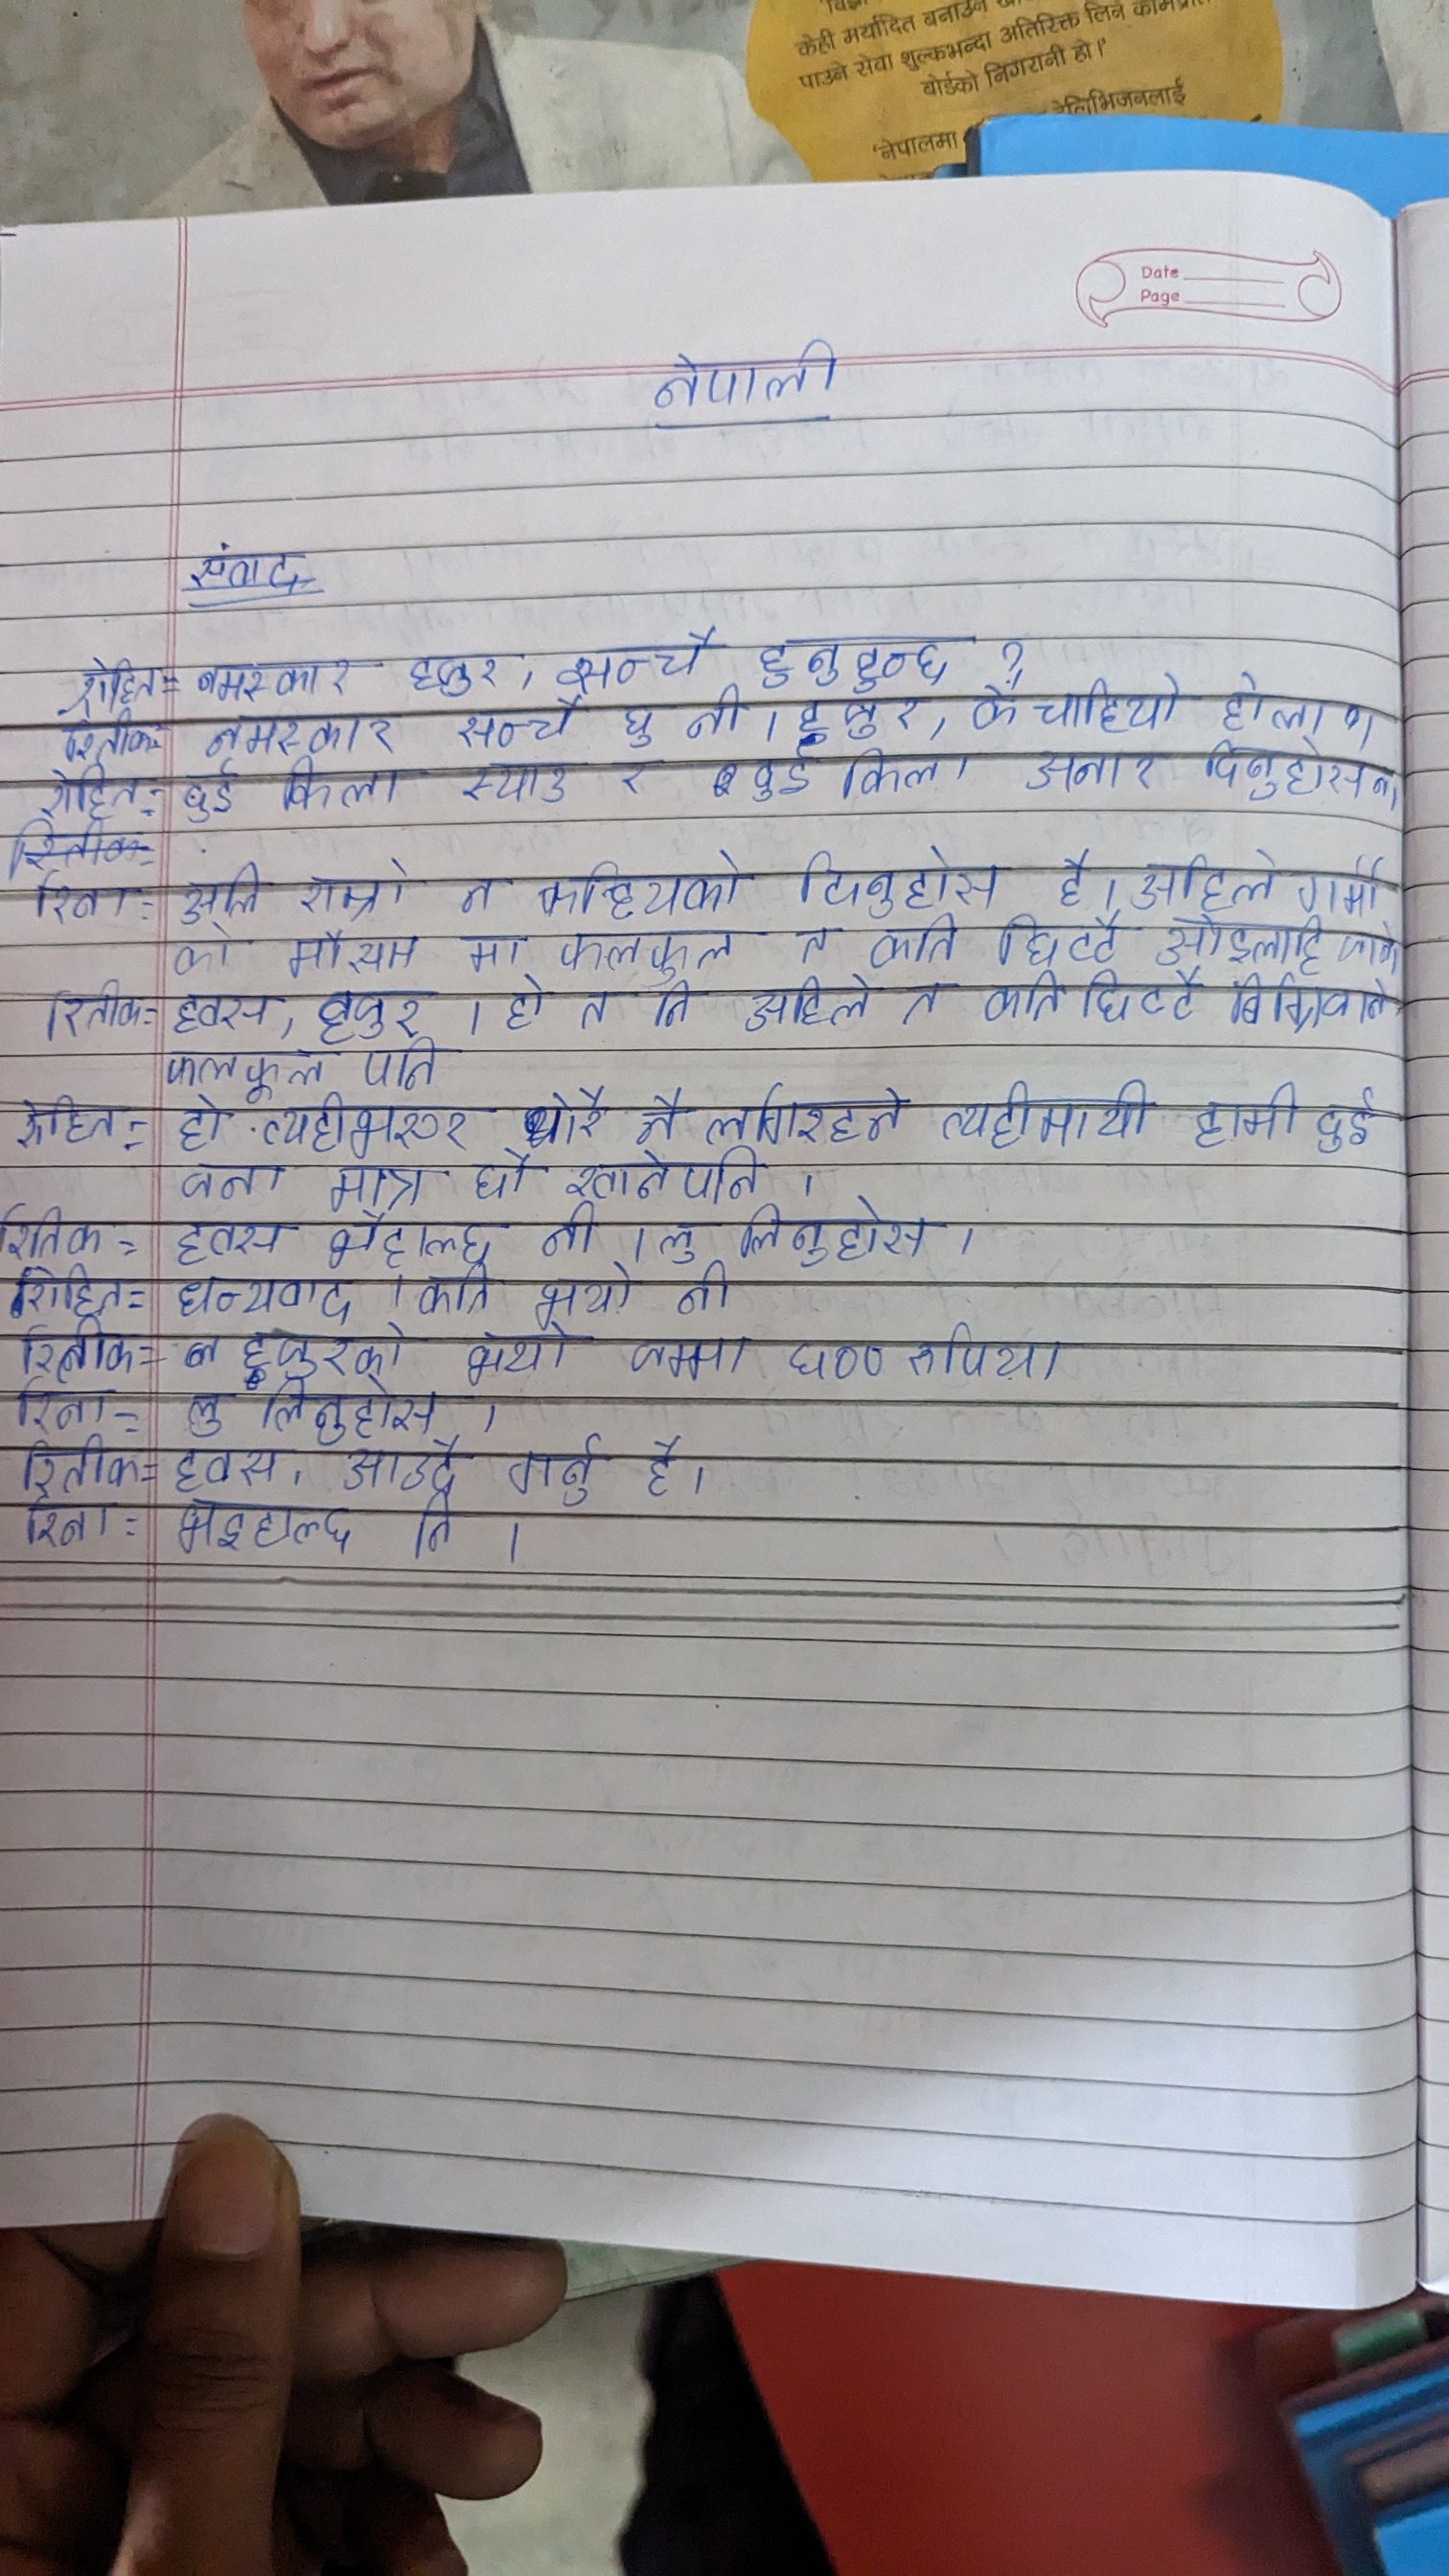 केही मर्यादित बनाउन
पाउने सेवा शुल्कभन्दा अतिरिक्त लिने
बोर्डको निगरानी हो।'
टेलिभिजनलाई
'नेपालमा
Date
Page
नेपाली
संवाद
रोहित= नमस्कार हजुर, सन्चै हुनुहुन्छ ?
रितीक= नमस्कार सन्चै छु नी । हजुर, के चाहियो होला ।
रोहित= दुई किला स्याउ र दुई किला अनार दिनुहोस न।
रितीक=
रिना= अलि राम्रो न कहियको दिनुहोस है। अहिले गर्मी
को मौसम मा फलफुल त कति छिटटै ओइलाहि जाने
रितीक= हवस, हजुर । हो त नि अहिले त कति छिटटै बिग्रिजाने
फलफूल पनि
रोहित= हो त्यहीभएर थोरै नै लगिरहने त्यहीमाथी हामी दुई
जना मात्र छौ खानेपनि ।
रितिक = हवस भैहाल्छ नी । लु लिनुहोस ।
रोहित= धन्यवाद । कति भयो नी
रितीक= हजुरको भयो जम्मा ६०० रुपिया
रिना= लु लिनुहोस ।
रितीक= हवस, आउदै गर्नु है।
रिना= भइहाल्छ नि ।